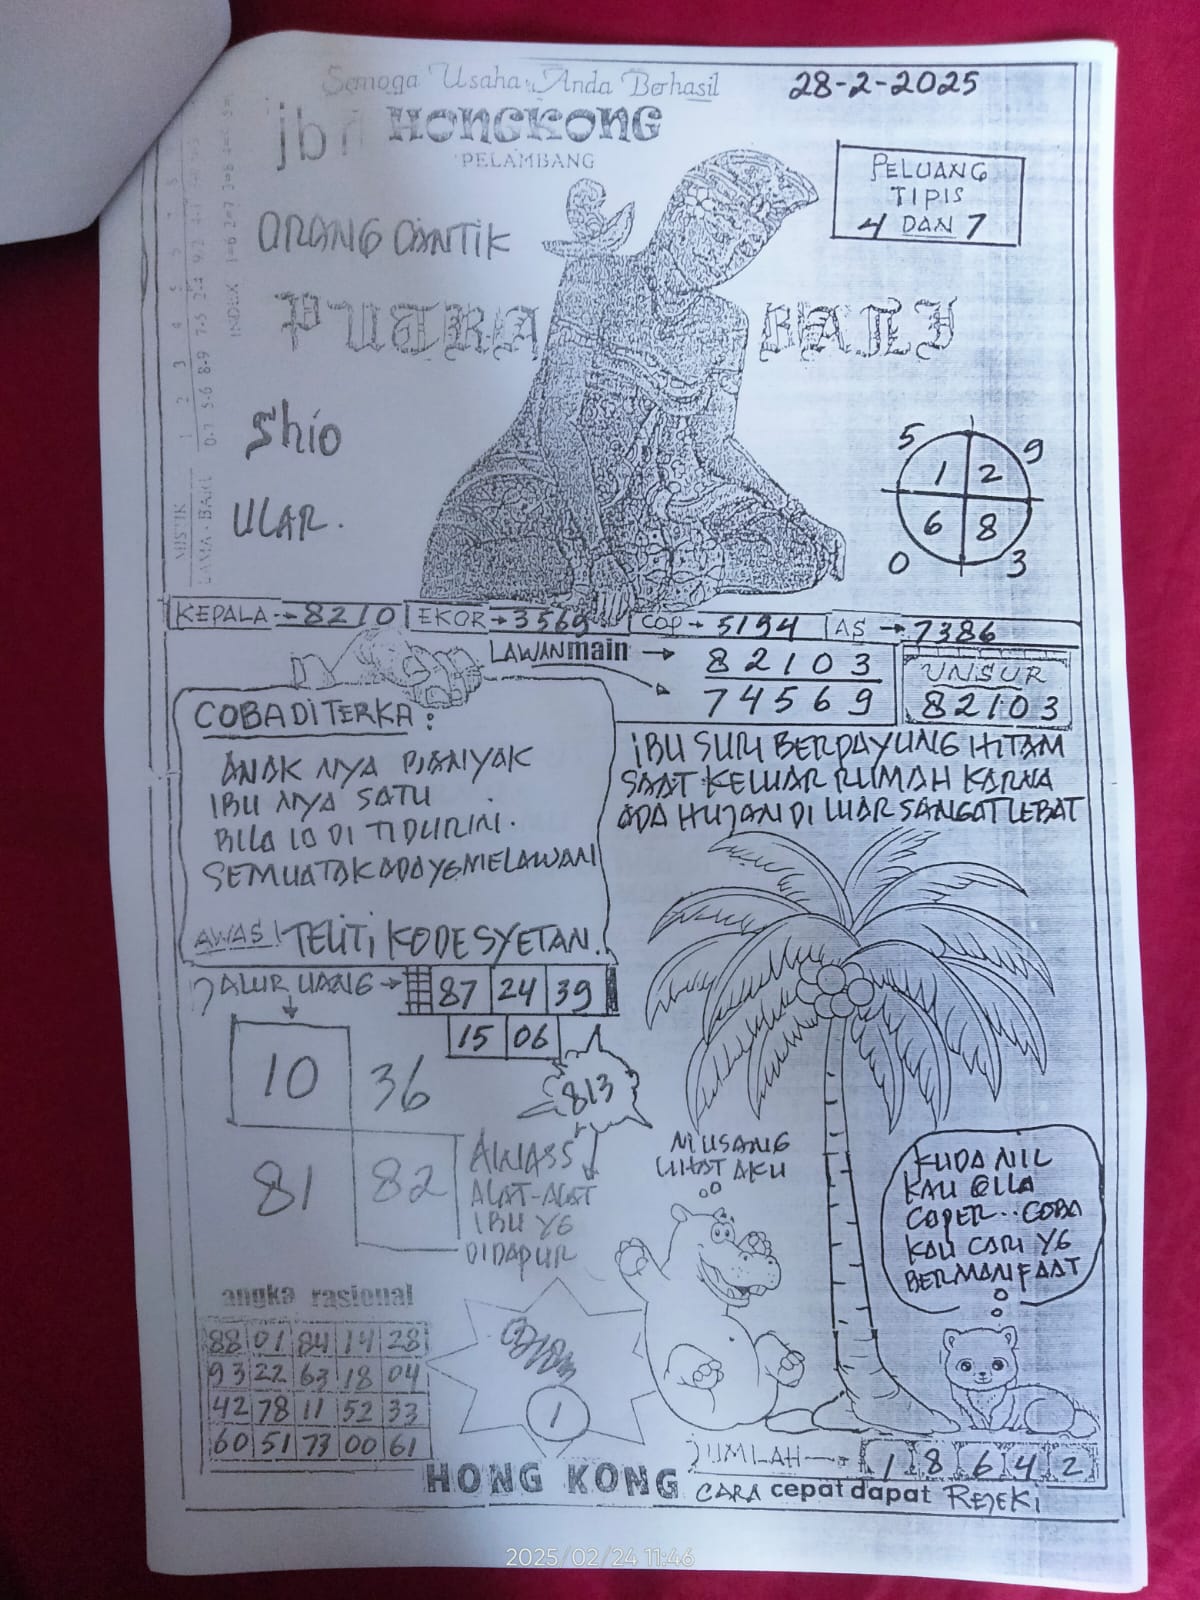 Semoga Usaha Anda Berhasil
28-2-2025
HONGKONG
PELAMBANG
PELUANG
TIPIS
4 DAN 7
ORANG CANTIK
PUTRA BALI
Shio
ULAR.
5 9
1 2
6 8
0 3
MISTIK
LAMA - BARU
INDEX
KEPALA → 8210 EKOR → 3569 COP → 5194 AS → 7386
LAWAN main → 82103
74569
UNSUR
82103
COBA DI TERKA :
ANAK NYA BANYAK
IBU NYA SATU
BILA 10 DI TIDURINI.
SEMUA TAK ADA YG MELAWAN
AWAS! TELITI KODE SYETAN.
IBU SURI BERPAYUNG HITAM
SAAT KELUAR RUMAH KARNA
ADA HUJAN DI LUAR SANGAT LEBAT
JALUR UANG → 87 24 39
15 06
10 36
81 82
813
AWASS
ALAT-ALAT
IBU YG
DIDAPUR
MUSANG
LIHAT AKU
KUDA NIL
KAU GILA
COPER.. COBA
KAU CARI YG
BERMANFAAT
angka rasional
88 01 84 14 28
93 22 63 18 04
42 78 11 52 33
60 51 73 00 61
1
JUMLAH → 1 8 6 4 2
HONG KONG
CARA cepat dapat REJEKI
2025/02/24 11:46